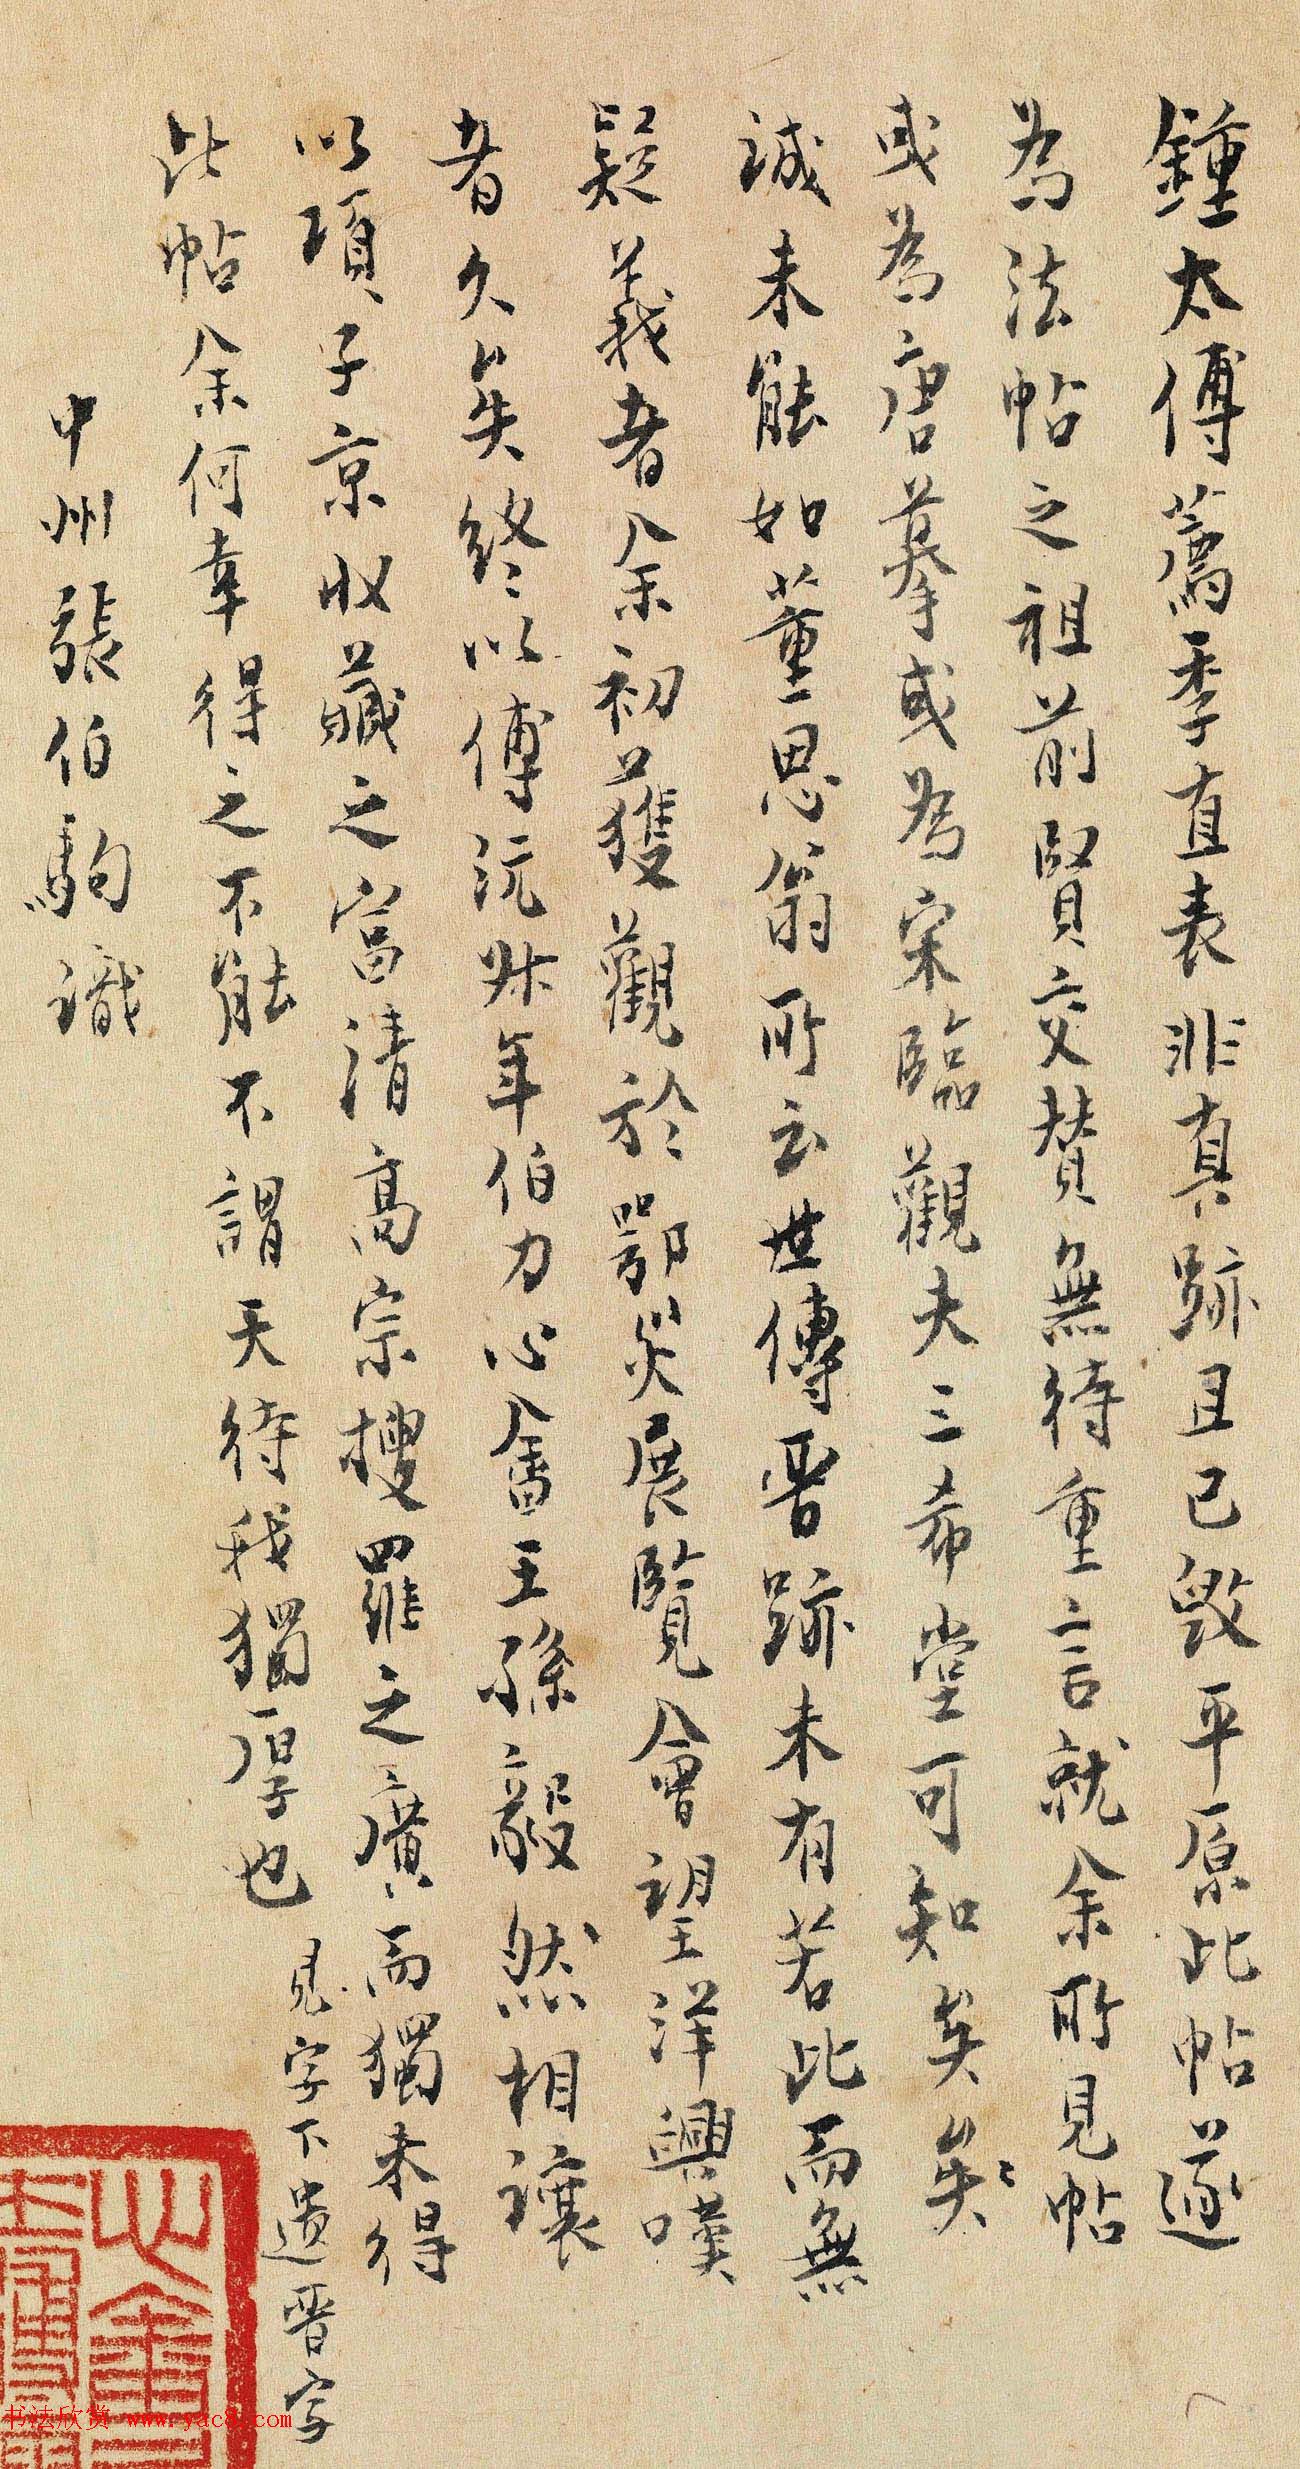 鍾太傅薦季直表非真跡且已毀平原此帖遂
為法帖之祖前賢交贊無待重言就余所見帖
或為唐摹或為宋臨觀夫三希堂可知矣矣
誠未能如董思翁所云世傳晉跡未有若此而無
疑義者余初獲觀於鄂災展覽會望洋興嘆
者久矣終以傅沅叔年伯力心畬王孫毅然相讓
以項子京收藏之富清高宗搜羅之廣而獨未得
此帖余何幸得之不能不謂天待我獨厚也
見字下遺晉字
中州張伯駒識
书法欣赏 www.yac8.com